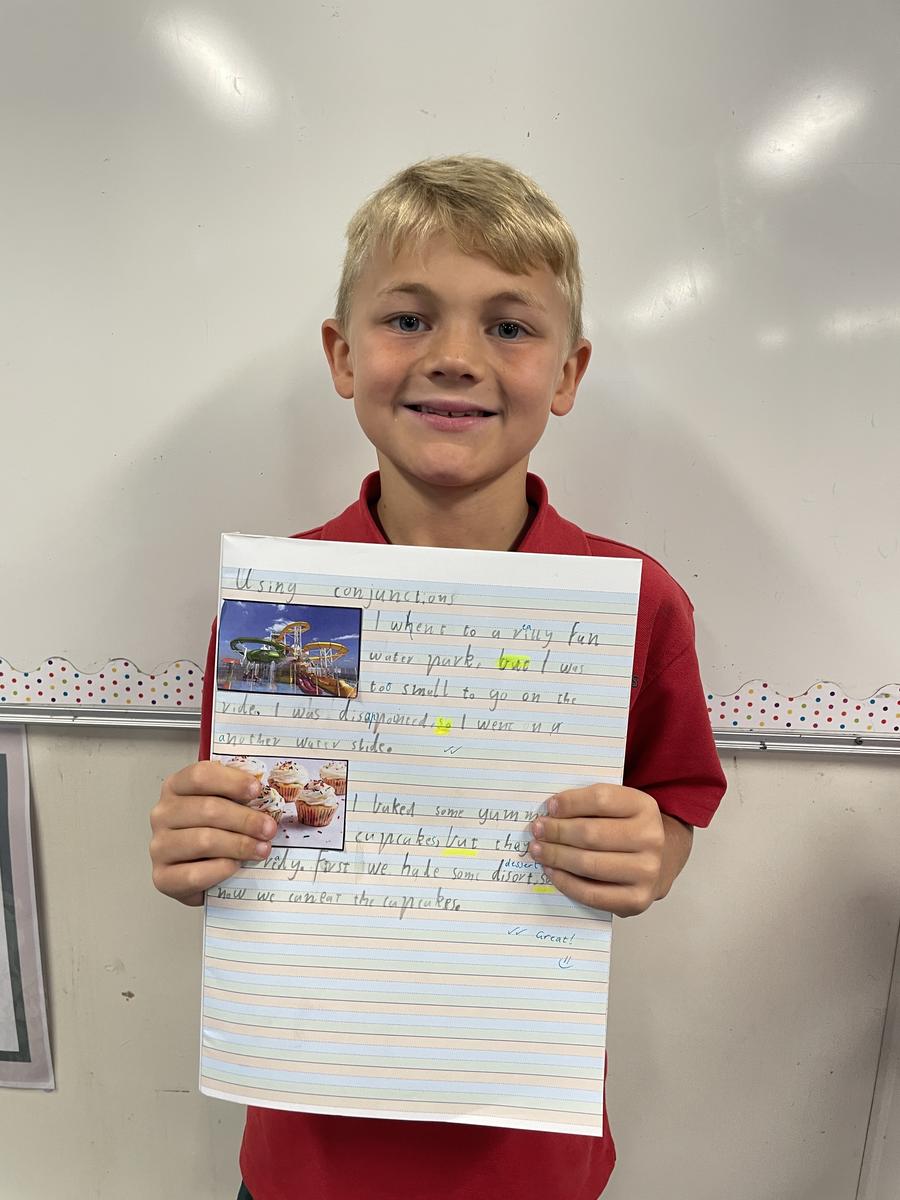 Using conjunctions
I whent to a rilly fun
ea
water park, but I was
too small to go on the
ride. I was disappointed, so I went on a
another water slide.
I baked some yumm
cupcakes, but they
rdy. first we hade some disort, so
dessert
now we can eat the cupcakes.
Great!